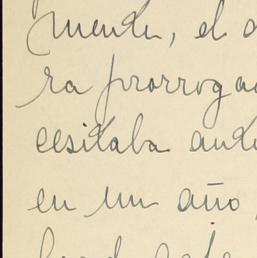 mente, el
ra prorroga
cesitaba ante
en un año